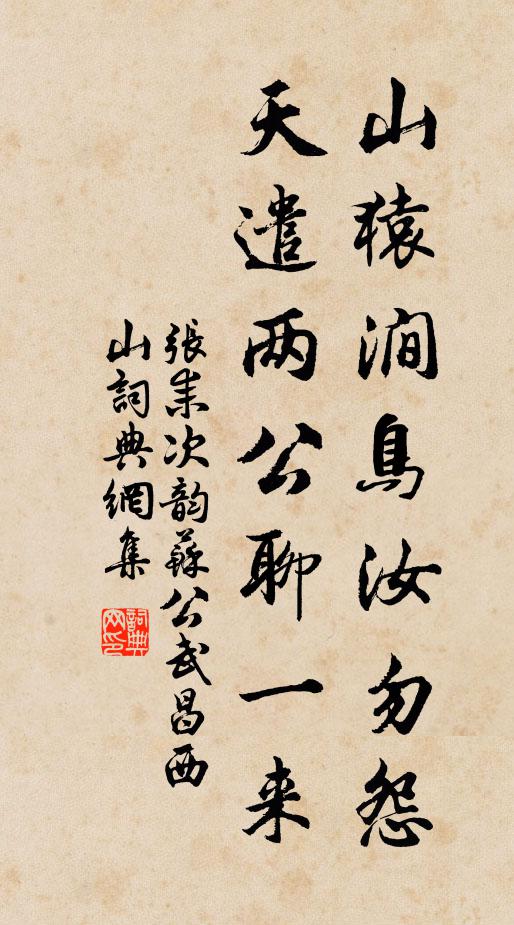 山猿涧鳥汝勿怨
天遣两公聊一来
張耒次韵蘇公武昌西
山詞典網集
詞典
网印